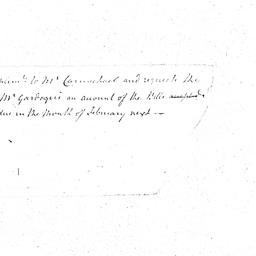 to Mr Carmichael and requests the
Mr Gardoqui an amount of the Bills
due in the Month of February next —